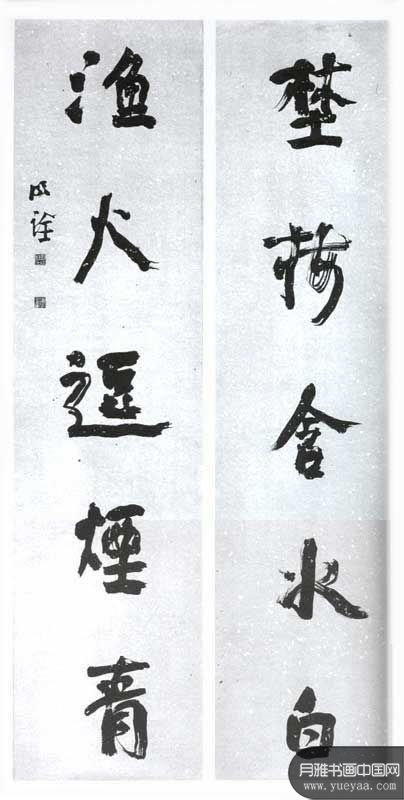 埜梅含水白
渔火逗煙青
明詮
月雅书画中国网
www.yueyaa.com